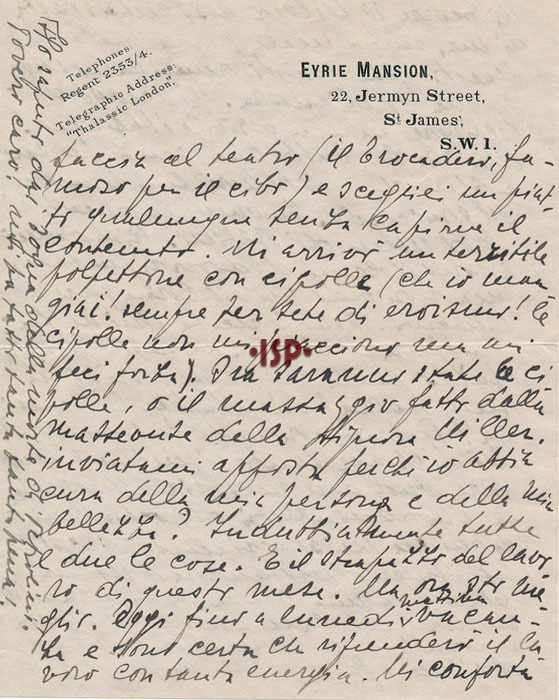 Telephones
Regent 2353/4.
Telegraphic Address.
"Thalassic London."
EYRIE MANSION,
22, Jermyn Street,
St James',
S.W.1.
faccia al teatro (il Trocadero, fa-
moso per il cibo) e scegliei un piat-
to qualunque senza capirne il
contenuto. Mi arrivò un terribile
polpettone con cipolle (che io man
giai! sempre per sete di eroismo! le
cipolle non mi piacciono ma mi
feci forza). Ora saranno state le ci
polle, o il massaggio fatto dalla
masseuse della Signora Miller.
inviatami apposta perchè io abbia
cura della mia persona e della mia
bellezza? Indubbiamente tutte
e due le cose. E il strapazzo del lavo
ro di questo mese. Ma ora sto me-
glio. Oggi fino a lunedì mattina vacan-
za e sono certa che riprenderò il la
voro con tanta energia. Mi conforta
Ho saputo da sopra della morte di
Povero caro! mi ha fatto tanta tanta pena!
·ISP·